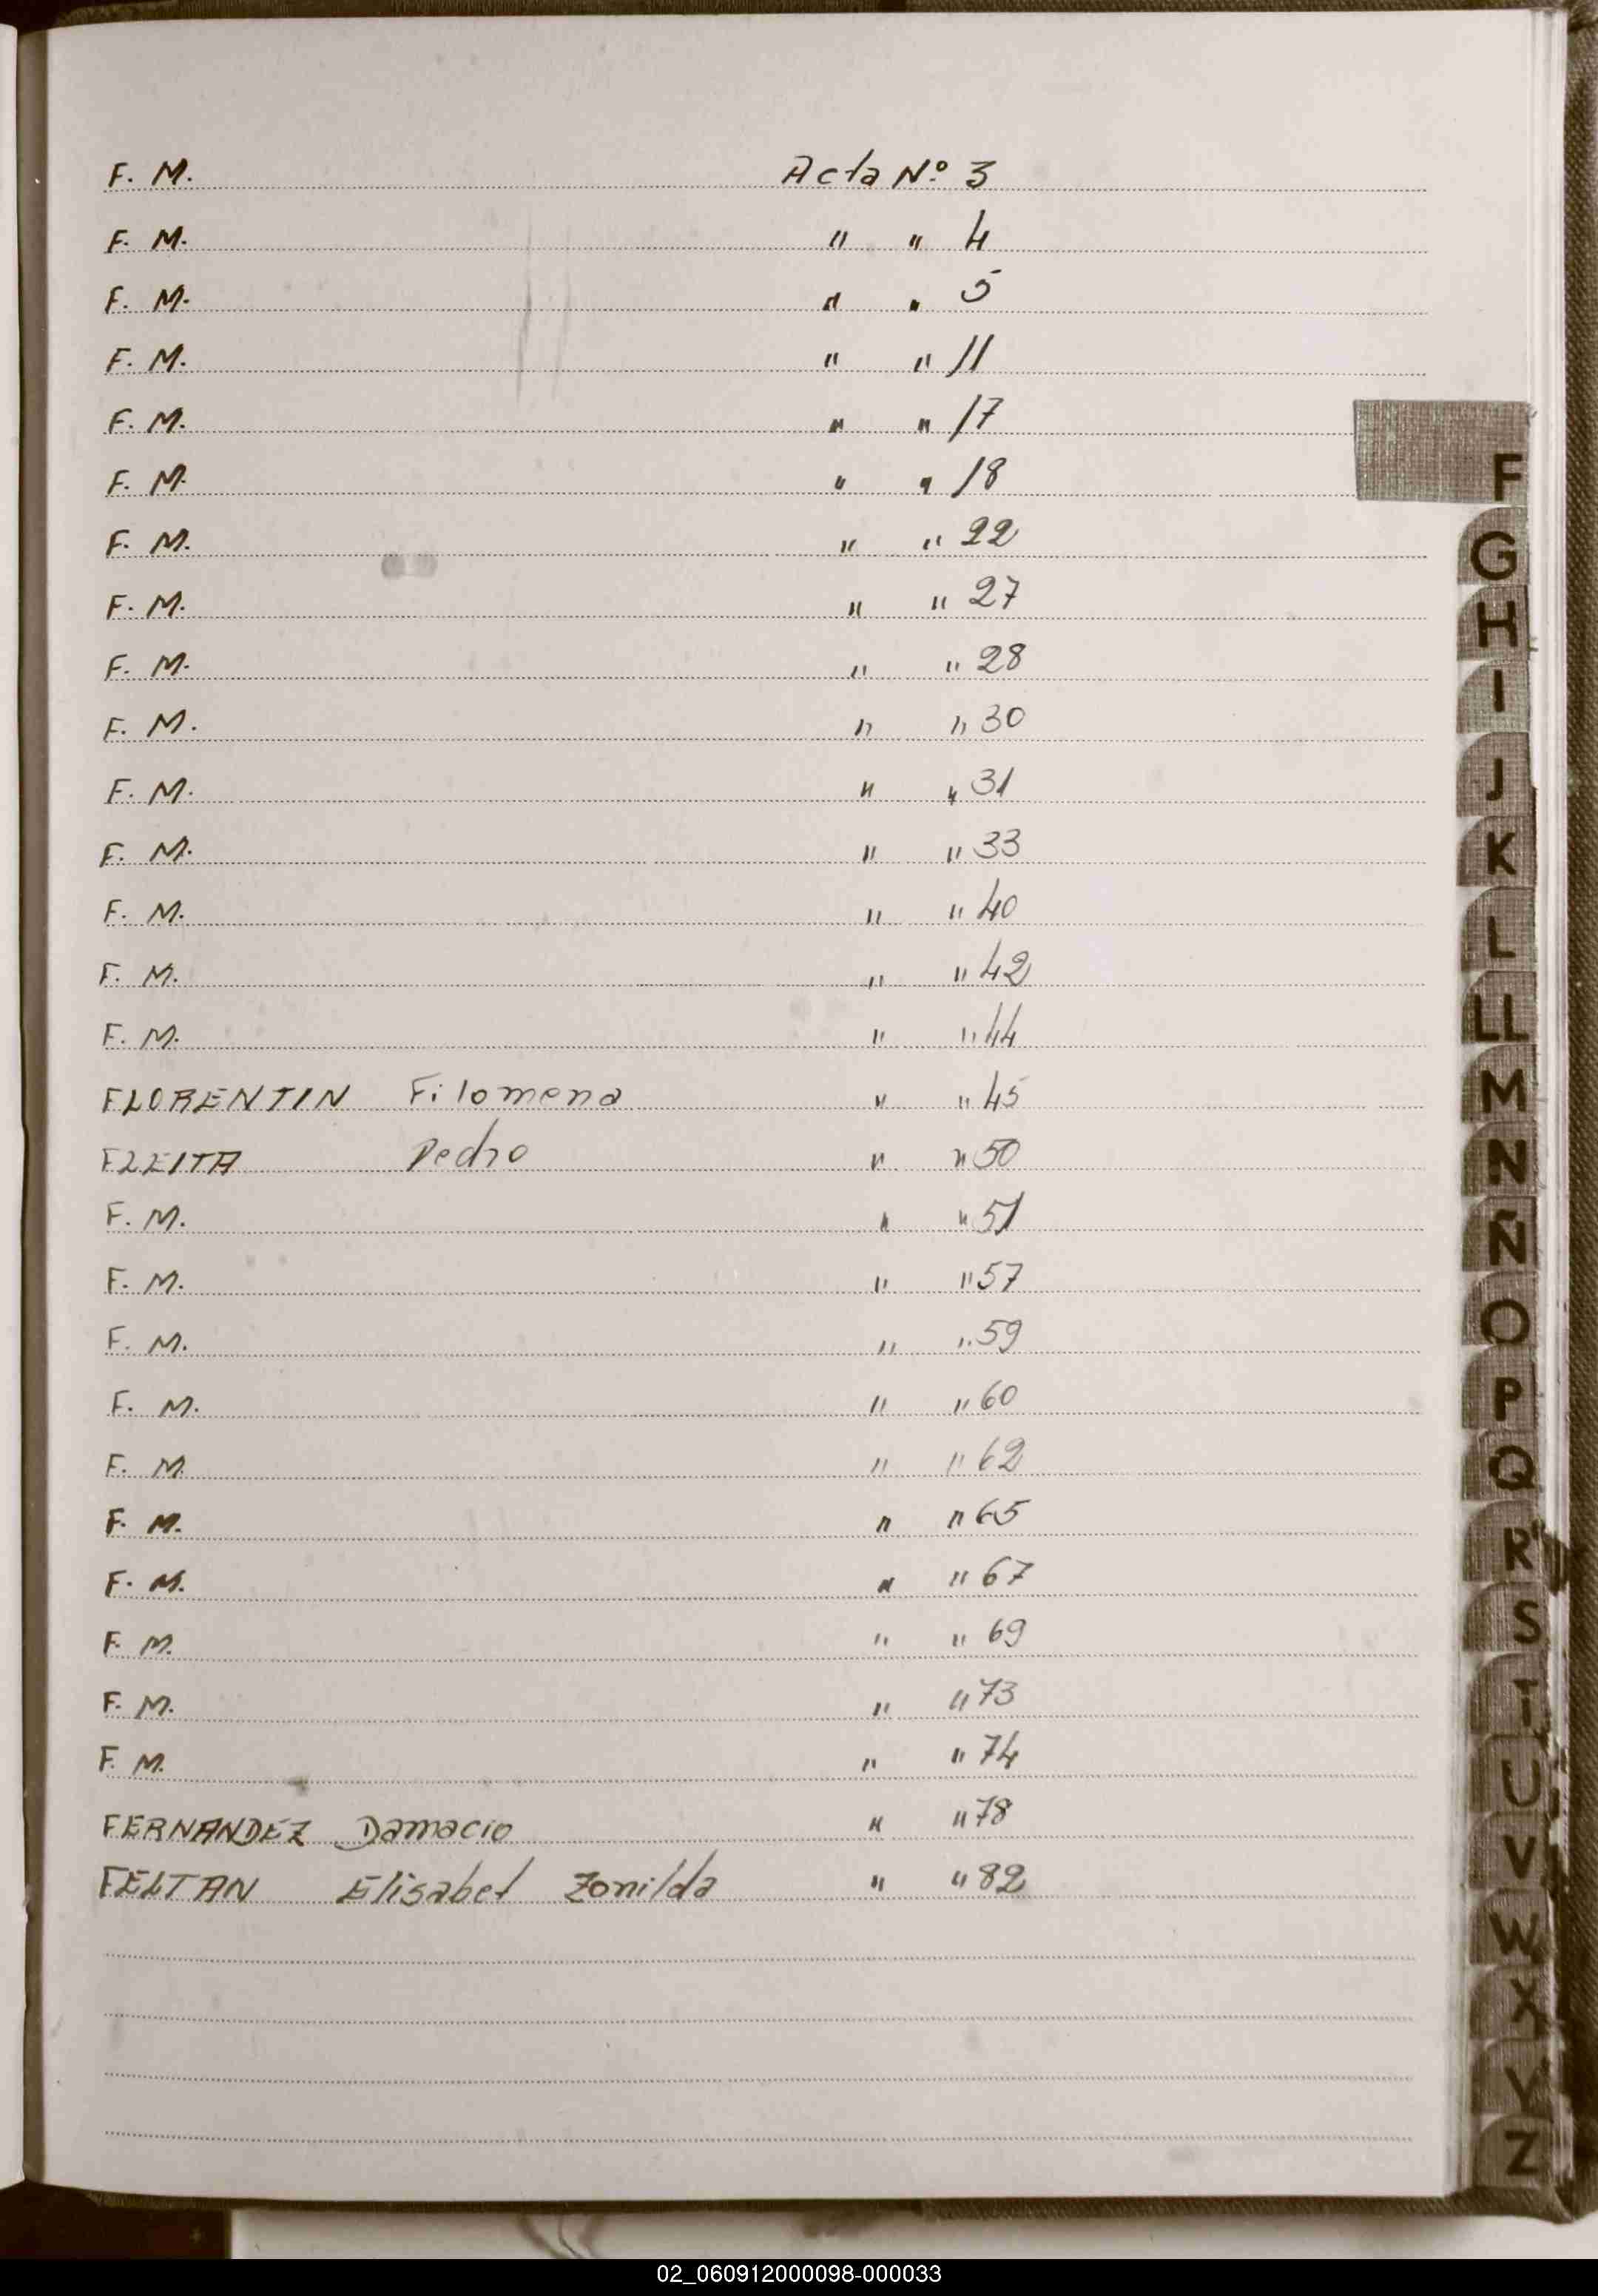 F. M. Acta Nº 3
F. M. " " 4
F. M. " " 5
F. M. " " 11
F. M. " " 17
F. M. " " 18
F. M. " " 22
F. M. " " 27
F. M. " " 28
F. M. " " 30
F. M. " " 31
F. M. " " 33
F. M. " " 40
F. M. " " 42
F. M. " " 44
FLORENTIN Filomena " " 45
FLEITA Pedro " " 50
F. M. " " 51
F. M. " " 57
F. M. " " 59
F. M. " " 60
F. M. " " 62
F. M. " " 65
F. M. " " 67
F. M. " " 69
F. M. " " 73
F. M. " " 74
FERNANDEZ Damacio " " 78
FELTAN Elisabet Zonilda " " 82
F
G
H
I
J
K
L
LL
M
N
Ñ
O
P
Q
R
S
T
U
V
W
X
Y
Z
02_060912000098-000033